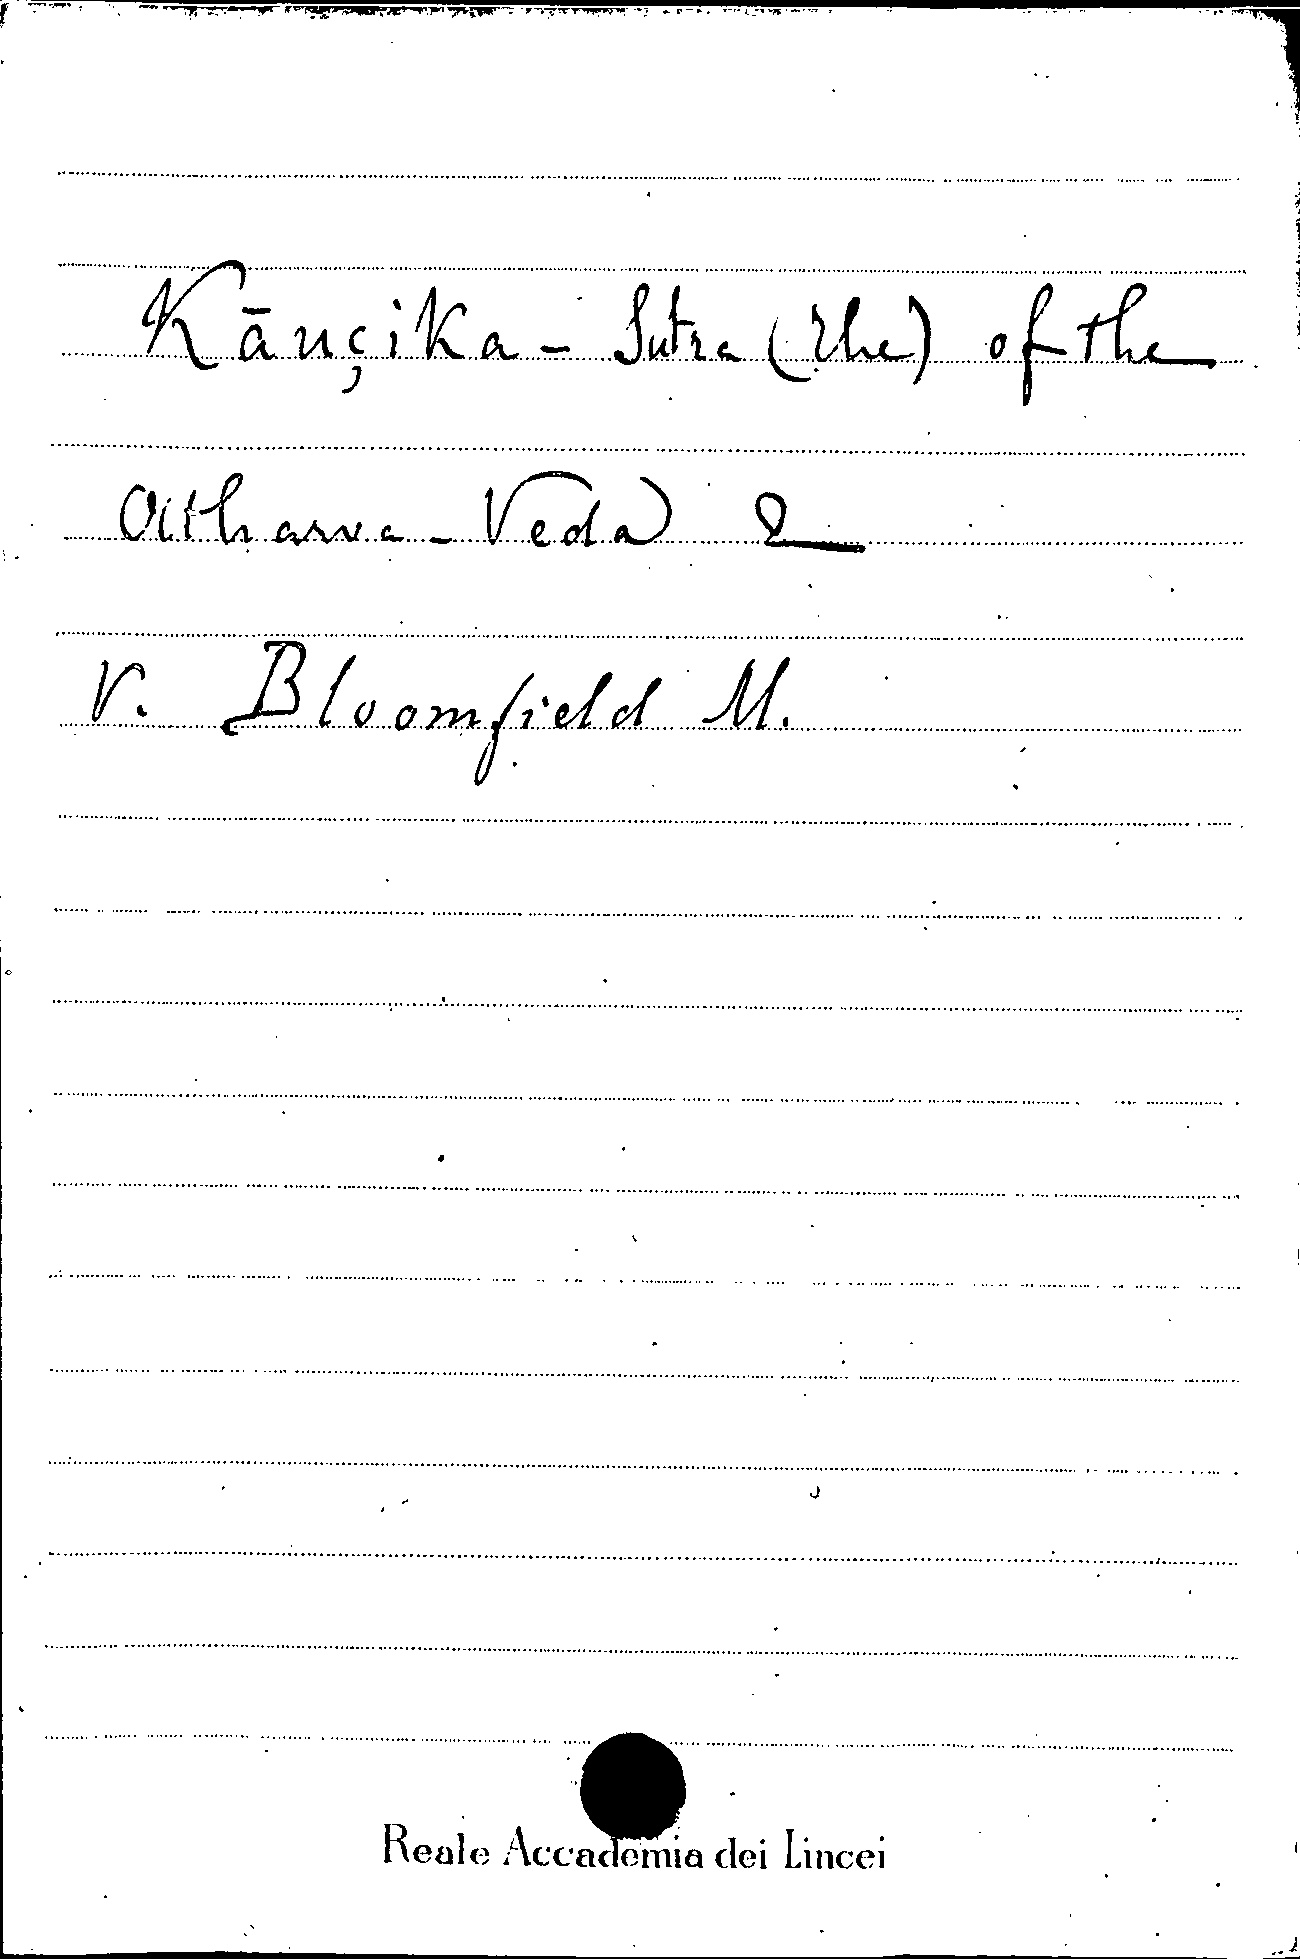 Kāuçika - Sutra (The) of the
Atharva - Veda
V. Bloomfield M.
Reale Accademia dei Lincei